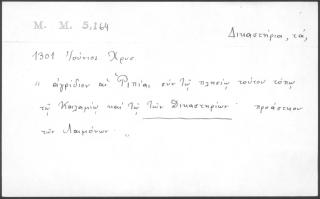 M. M. 5.164
Δικαστήρια, τά,
1301 Ἰούνιος Χρυσ.
" ἀγρίδιον αἱ Ῥιπίαι σὺν τῷ πλησίῳ τούτου τόπῳ
τῷ Καλαμίῳ καὶ τῷ τῶν Δικαστηρίων · προάστειον
τῶν Λαιμόνων · "